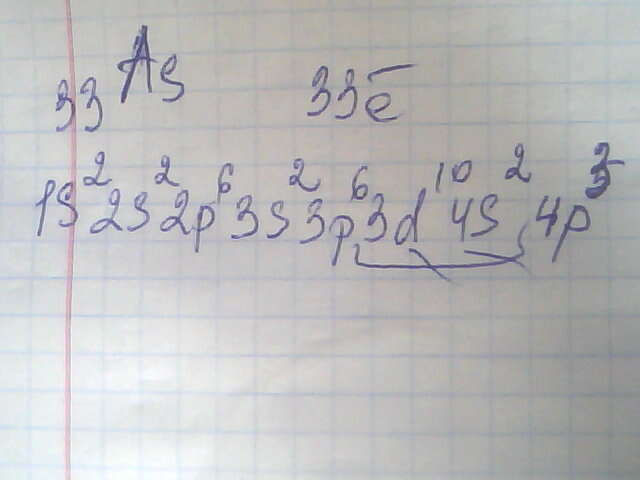 ₃₃As 33e̅
1s²2s²2p⁶3s²3p⁶3d¹⁰4s²4p³